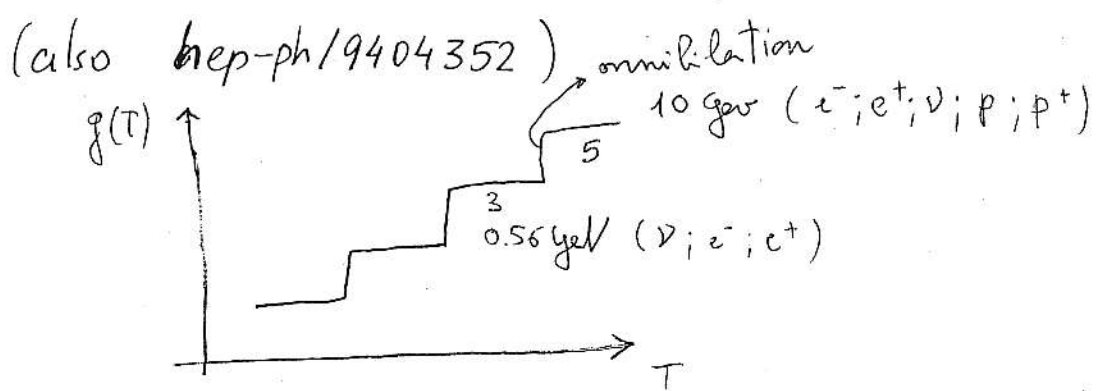 (also hep-ph/9404352)
annihilation
10 GeV (e⁻; e⁺; ν; p; p⁺)
g(T)
5
3
0.56 GeV (ν; e⁻; e⁺)
T